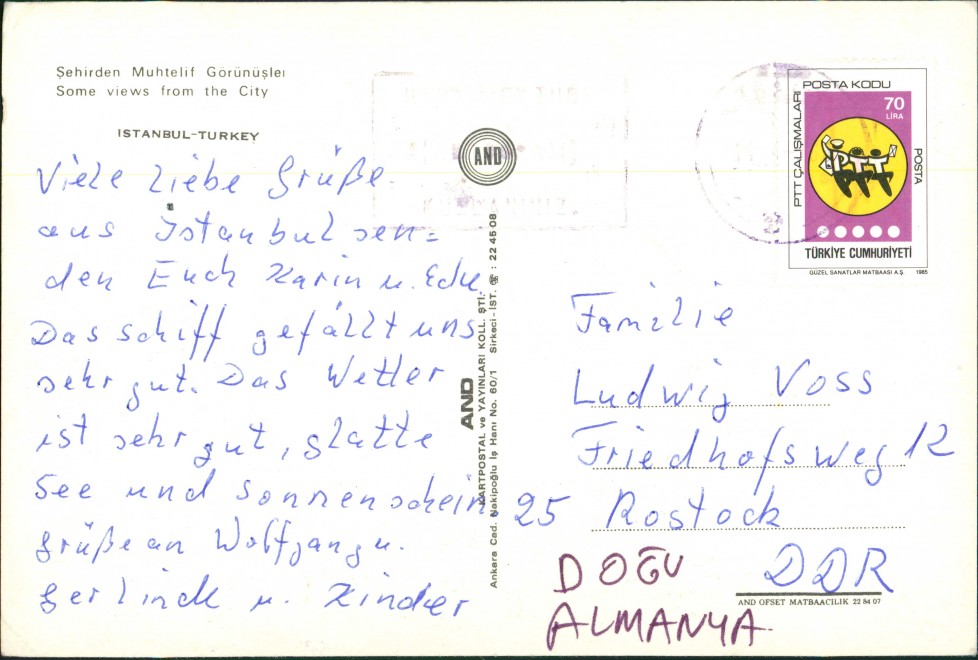 Şehirden Muhtelif Görünüşler
Some views from the City
ISTANBUL-TURKEY
Viele liebe Grüße
aus İstanbul sen=
den Euch Karin u. Edu.
Das Schiff gefällt uns
sehr gut. Das Wetter
ist sehr gut, glatte
See und Sonnenschein
Grüße an Wolfgang u.
Gerlinde u. Kinder
AND
AND
KARTPOSTAL ve YAYINLARI KOLL. ŞTİ.
Ankara Cad. Nakipoğlu İş Hanı No. 60/1 Sirkeci-İST. ☎ : 22 45 08
POSTA KODU
PTT ÇALIŞMALARI
70
LİRA
PTT
POSTA
TÜRKİYE CUMHURİYETİ
GÜZEL SANATLAR MATBAASI A.Ş. 1985
Familie
Ludwig Voss
Friedhofsweg 12
25 Rostock
DDR
DOĞU
ALMANYA
AND OFSET MATBAACILIK 22 84 07